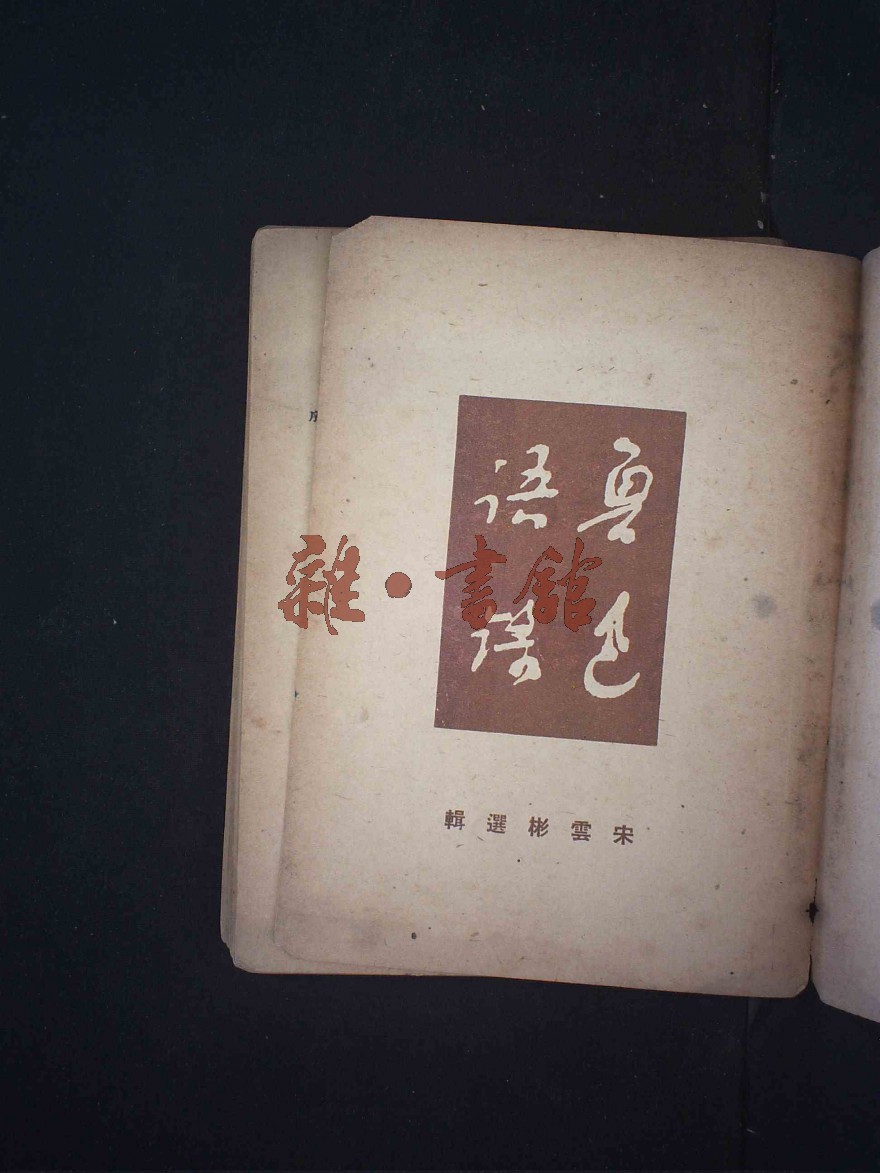 魯迅
語录
宋雲彬選輯
雜·書館